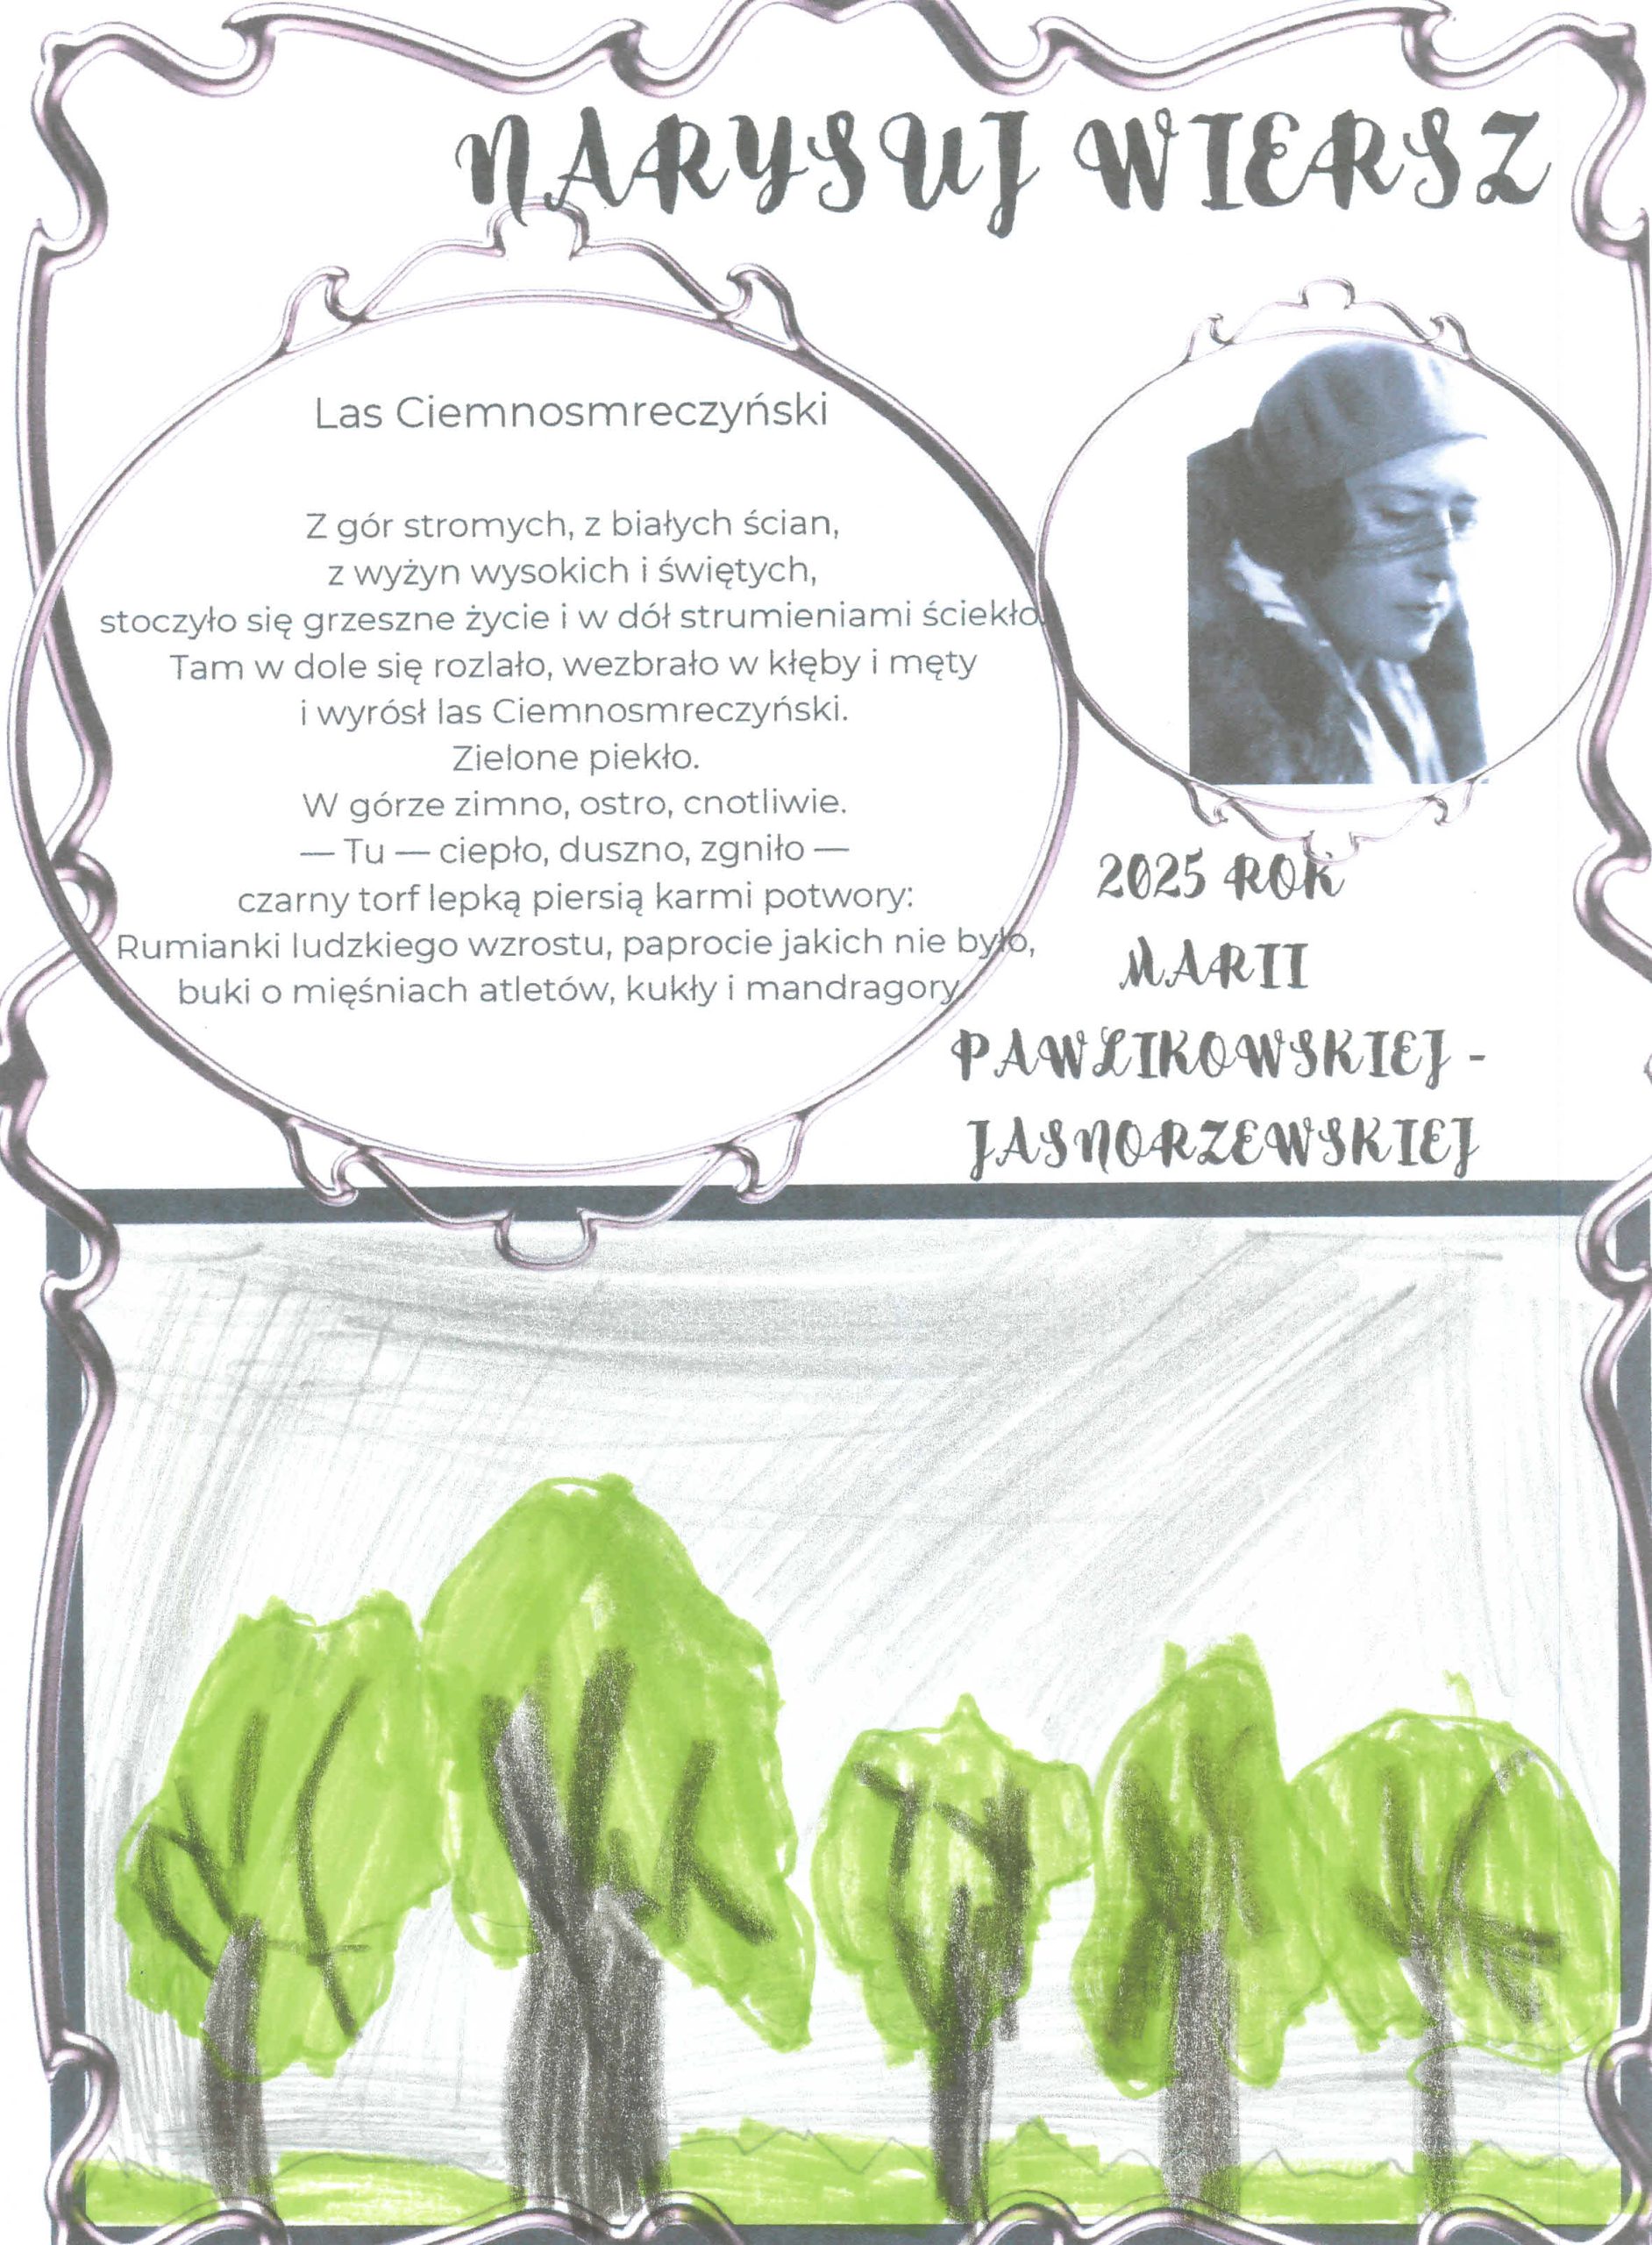 NARYSUJ WIERSZ
Las Ciemnosmreczyński
Z gór stromych, z białych ścian,
z wyżyn wysokich i świętych,
stoczyło się grzeszne życie i w dół strumieniami ściekło.
Tam w dole się rozlało, wezbrało w kłęby i męty
i wyrósł las Ciemnosmreczyński.
Zielone piekło.
W górze zimno, ostro, cnotliwie.
— Tu — ciepło, duszno, zgniło —
czarny torf lepką piersią karmi potwory:
Rumianki ludzkiego wzrostu, paprocie jakich nie było,
buki o mięśniach atletów, kukły i mandragory.
2025 ROK
MARII
PAWLIKOWSKIEJ -
JASNORZEWSKIEJ